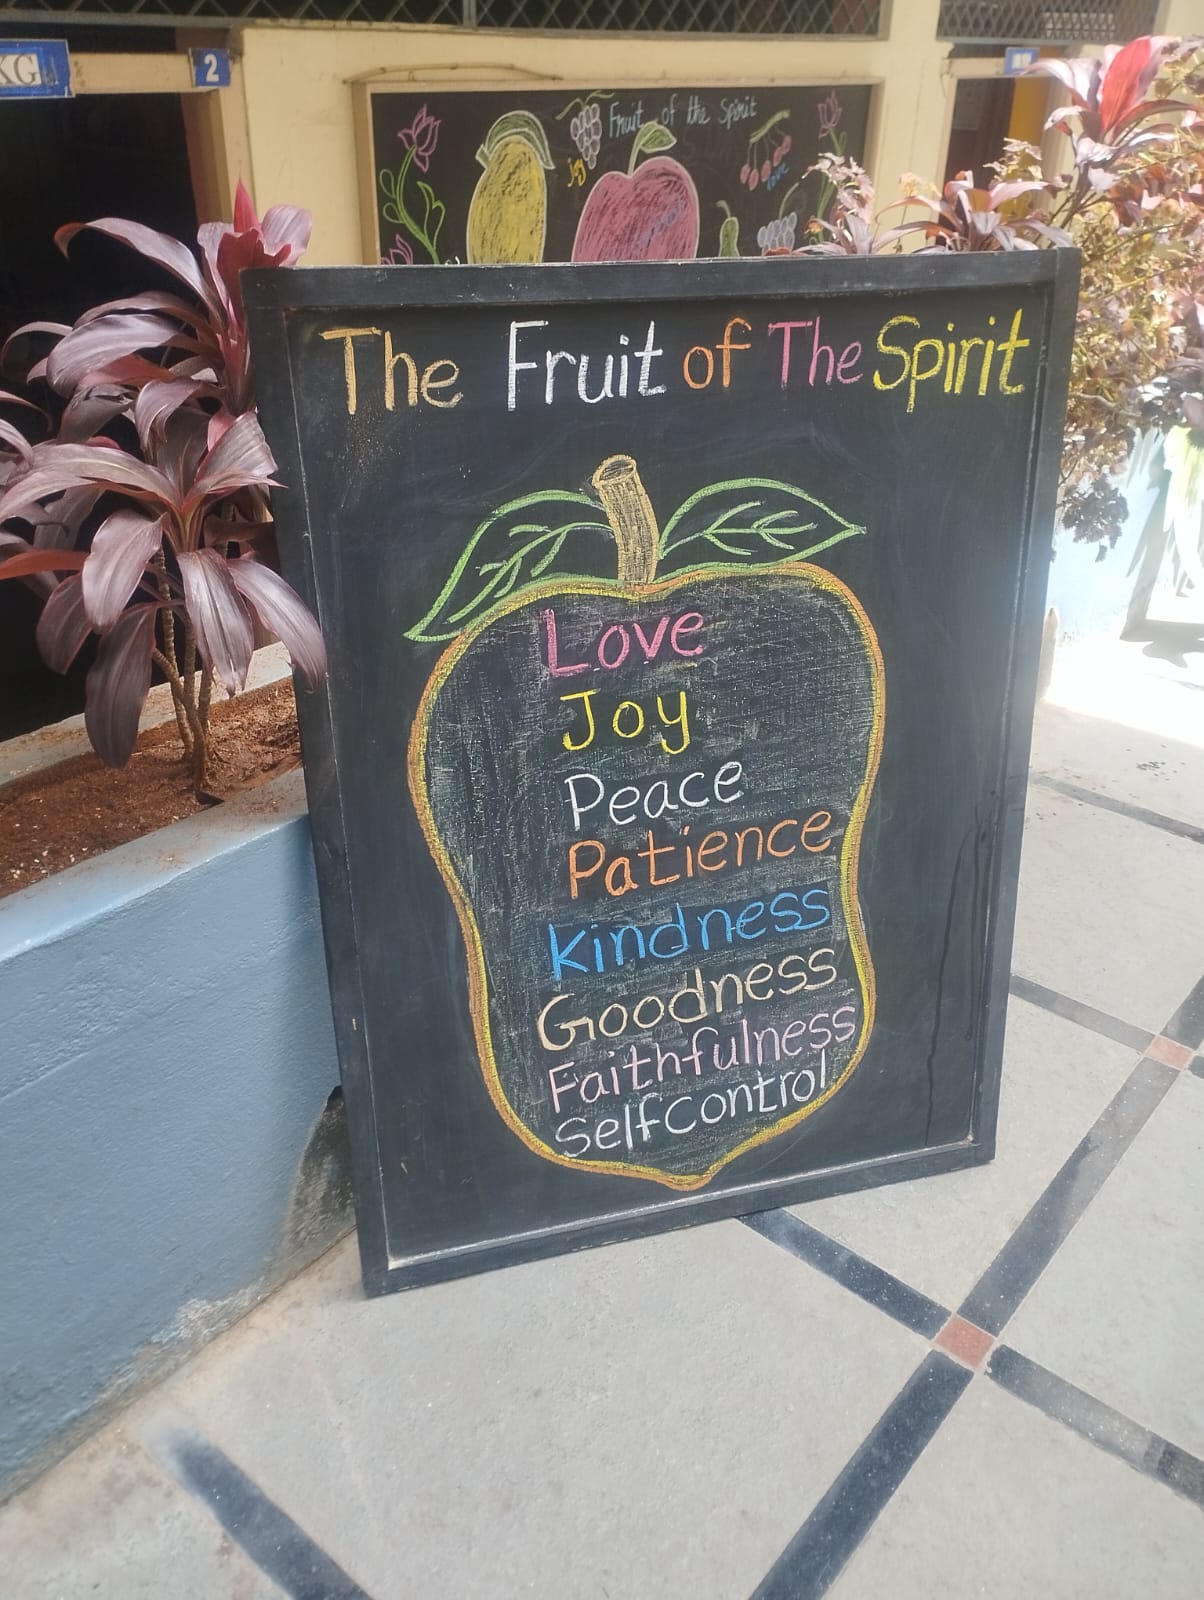 KG
2
Fruit of the Spirit
joy
love
The Fruit of The Spirit
Love
Joy
Peace
Patience
Kindness
Goodness
Faithfulness
Selfcontrol